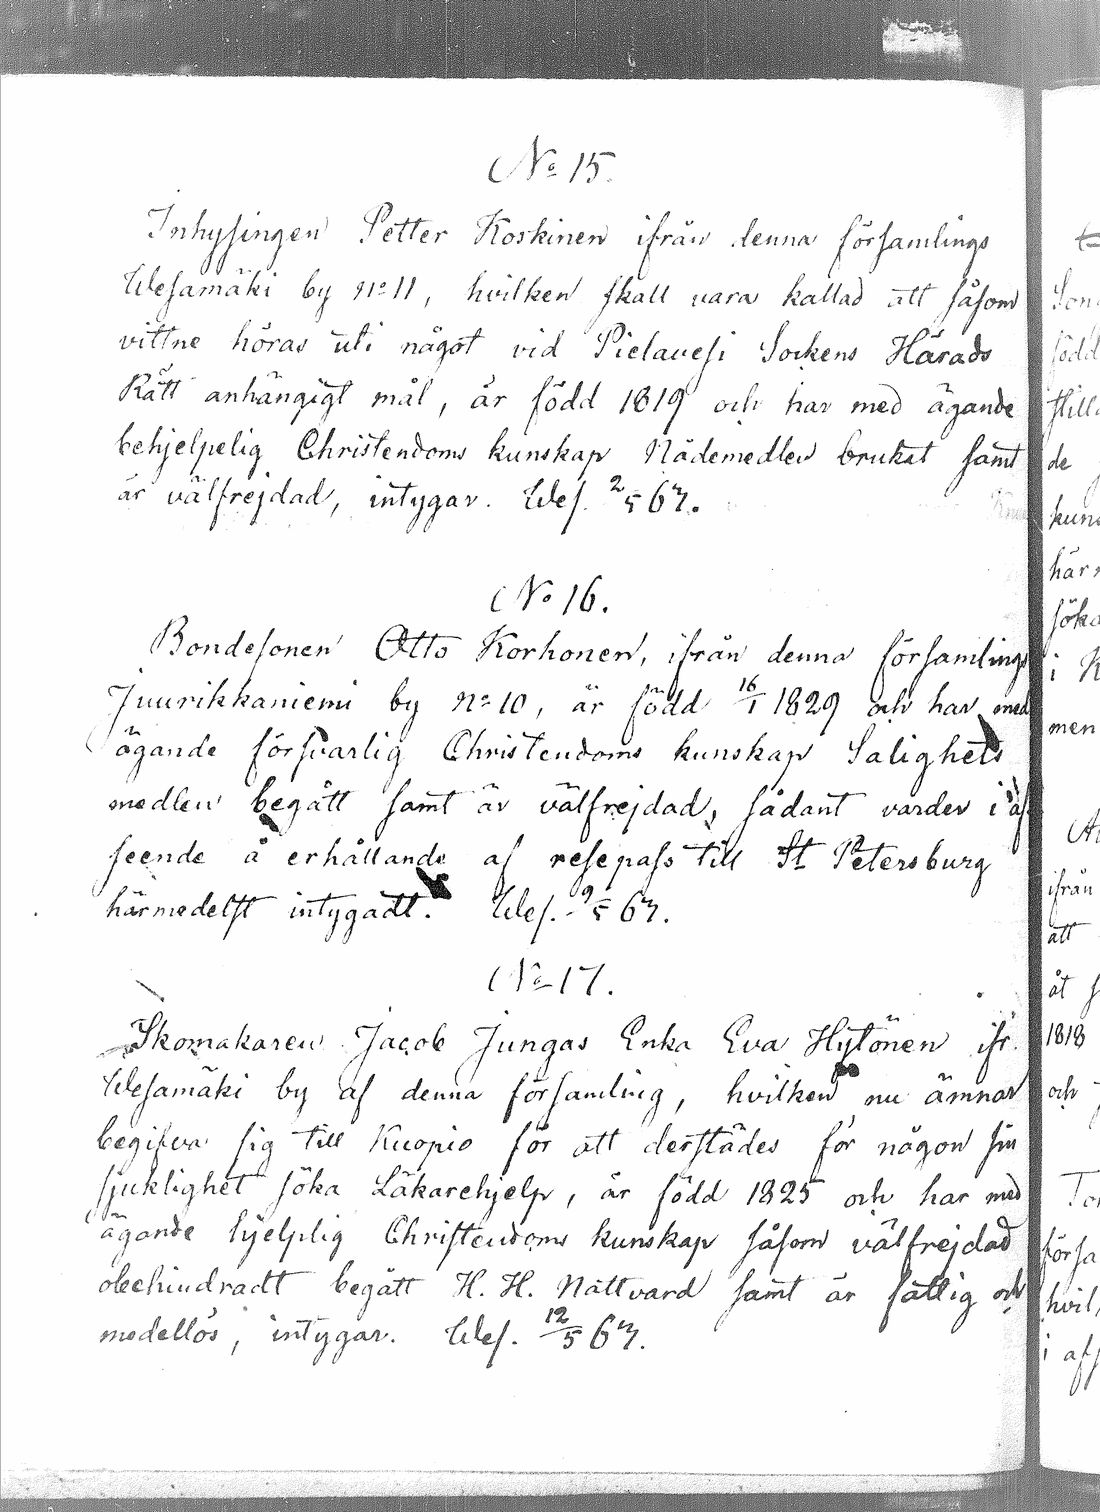 No 15.
Inhysingen Petter Koskinen ifrån denna församlings
Wesamäki by no 11, hvilken skall vara kallad att såsom
vittne höras uti något vid Pielavesi Sockens Härads
Rätt anhängigt mål, är född 1819 och har med ägande
behjelpelig Christendoms kunskap Nådemedlen brukat samt
är välfrejdad, intygar. Wes. 2/5 67.
No 16.
Bondesonen Otto Korhonen, ifrån denna församlings
Juurikkaniemi by no 10, är född 16/1 1829 och har med
ägande försvarlig Christendoms kunskap Salighets
medlen begått samt är välfrejdad, sådant varder i af
seende å erhållande af resepass till St Petersburg
härmedelst intygadt. Wes. 9/5 67.
No 17.
Skomakaren Jacob Jungas Enka Eva Hytönen ifr.
Wesamäki by af denna församling, hvilken nu ämnar
begifva sig till Kuopio för att derstädes för någon sin
sjuklighet söka Läkarehjelp, är född 1825 och har med
ägande hjelplig Christendoms kunskap såsom välfrejdad
obehindradt begått H. H. Nattvard samt är fattig och
medellös, intygar. Wes. 12/5 67.
Son
född
de
kuns
härm
söka
i K
men
ifrån
att
åt s
1818
och
försa
hvil
i afs